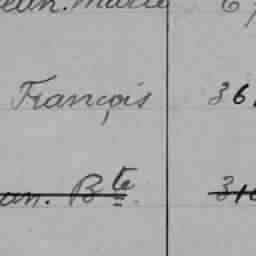 Jean. Marie 67
François 36.
an. Bte. 310